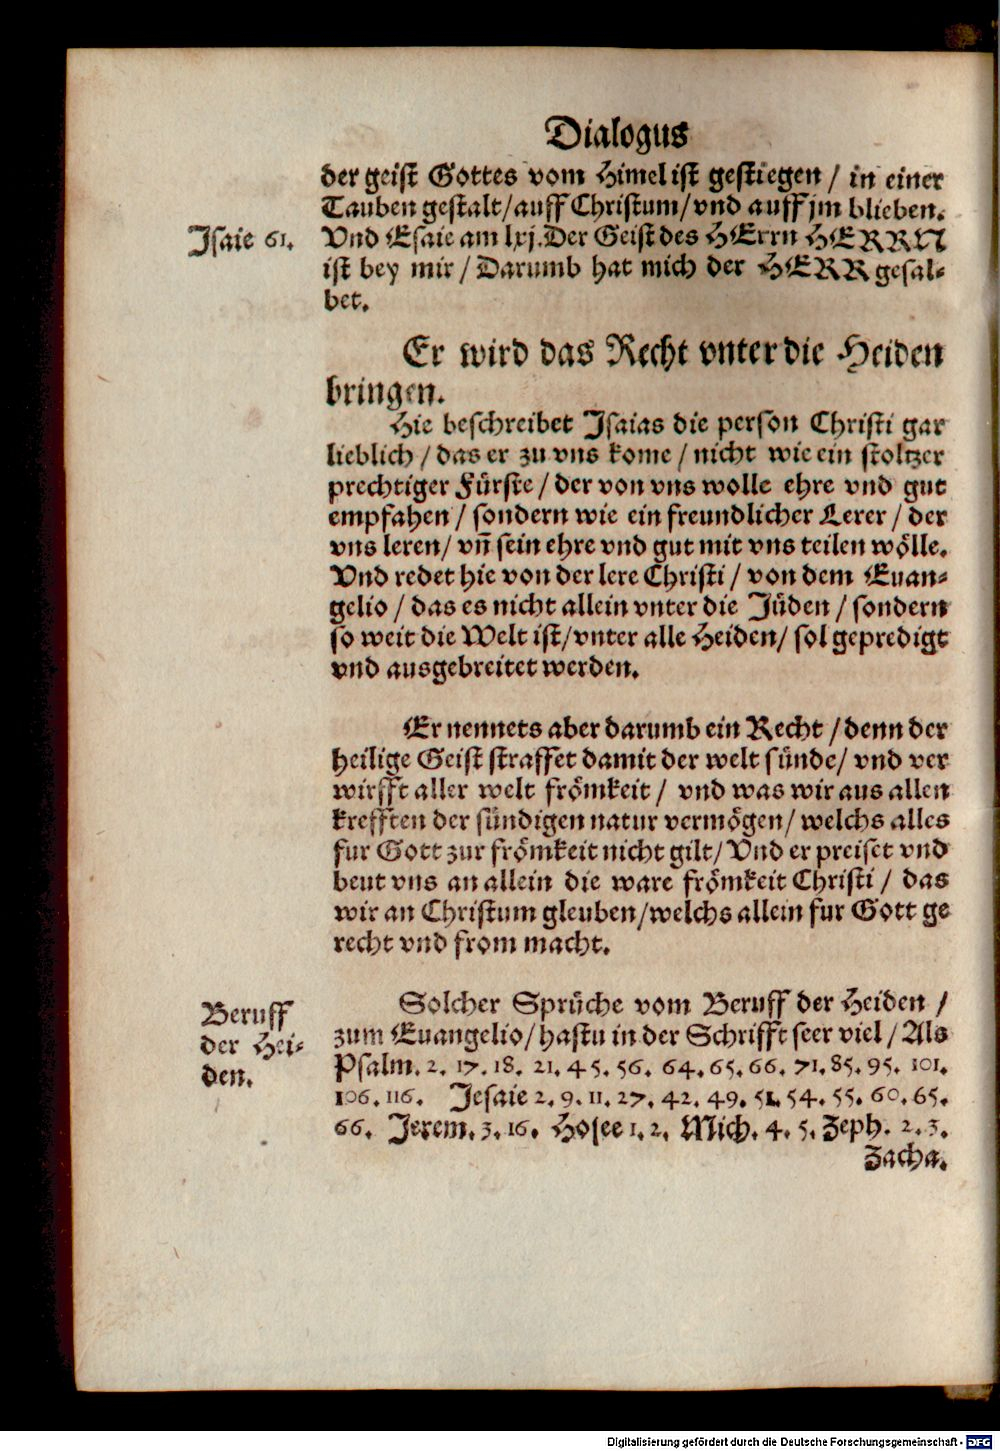 Dialogus
der geist Gottes vom Himel ist gestiegen / in einer
Tauben gestalt / auff Christum / vnd auff jm blieben.
Isaie 61.
Vnd Esaie am lxj. Der Geist des HErrn HERRN
ist bey mir / Darumb hat mich der HERR gesal-
bet.
Er wird das Recht vnter die Heiden
bringen.
Hie beschreibet Isaias die person Christi gar
lieblich / das er zu vns kome / nicht wie ein stoltzer
prechtiger Fürste / der von vns wolle ehre vnd gut
empfahen / sondern wie ein freundlicher Lerer / der
vns leren / vñ sein ehre vnd gut mit vns teilen wölle.
Vnd redet hie von der lere Christi / von dem Euan-
gelio / das es nicht allein vnter die Jüden / sondern
so weit die Welt ist / vnter alle Heiden / sol gepredigt
vnd ausgebreitet werden.
Er nennets aber darumb ein Recht / denn der
heilige Geist straffet damit der welt sünde / vnd ver
wirfft aller welt frömkeit / vnd was wir aus allen
krefften der sündigen natur vermögen / welchs alles
fur Gott zur frömkeit nicht gilt / Vnd er preiset vnd
beut vns an allein die ware frömkeit Christi / das
wir an Christum gleuben / welchs allein fur Gott ge
recht vnd from macht.
Beruff
der Hei-
den.
Solcher Sprüche vom Beruff der Heiden /
zum Euangelio / hastu in der Schrifft seer viel / Als
Psalm. 2. 17. 18. 21. 45. 56. 64. 65. 66. 71. 85. 95. 101.
106. 116. Jesaie 2. 9. 11. 27. 42. 49. 51. 54. 55. 60. 65.
66. Jerem. 3. 16. Hosee 1. 2. Mich. 4. 5. Zeph. 2. 3.
Zacha.
Digitalisierung gefördert durch die Deutsche Forschungsgemeinschaft - DFG